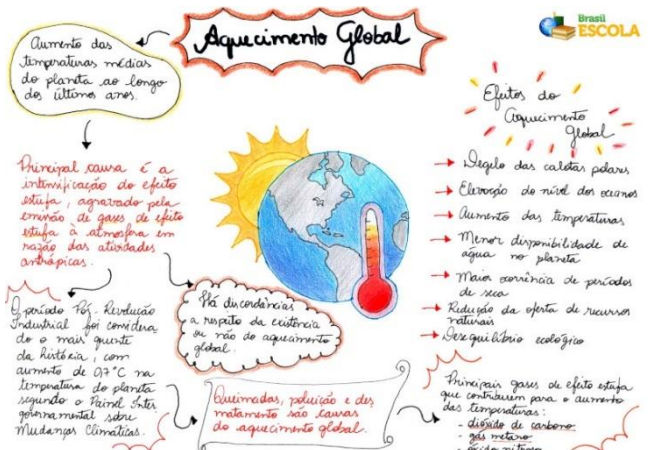 Aquecimento Global
Brasil
ESCOLA
Aumento das
temperaturas médias
do planeta ao longo
dos últimos anos.
Principal causa é a
intensificação do efeito
estufa, agravado pela
emissão de gases de efeito
estufa à atmosfera em
razão das atividades
antrópicas.
O período Pós-Revolução
Industrial foi considera
do o mais quente
da história, com
aumento de 0,7°C na
temperatura do planeta
segundo o Painel Inter
governamental sobre
Mudanças Climáticas.
Há discordâncias
a respeito da existência
ou não do aquecimento
global.
Queimadas, poluição e des
matamento são causas
do aquecimento global.
Efeitos do
aquecimento
Global
Degelo das calotas polares
Elevação do nível dos oceanos
Aumento das temperaturas
Menor disponibilidade de
água no planeta
Maior ocorrência de períodos
de seca
Redução da oferta de recursos
naturais
Desequilíbrio ecológico
Principais gases de efeito estufa
que contribuem para o aumento
das temperaturas:
- dióxido de carbono
- gás metano
- óxido nitroso